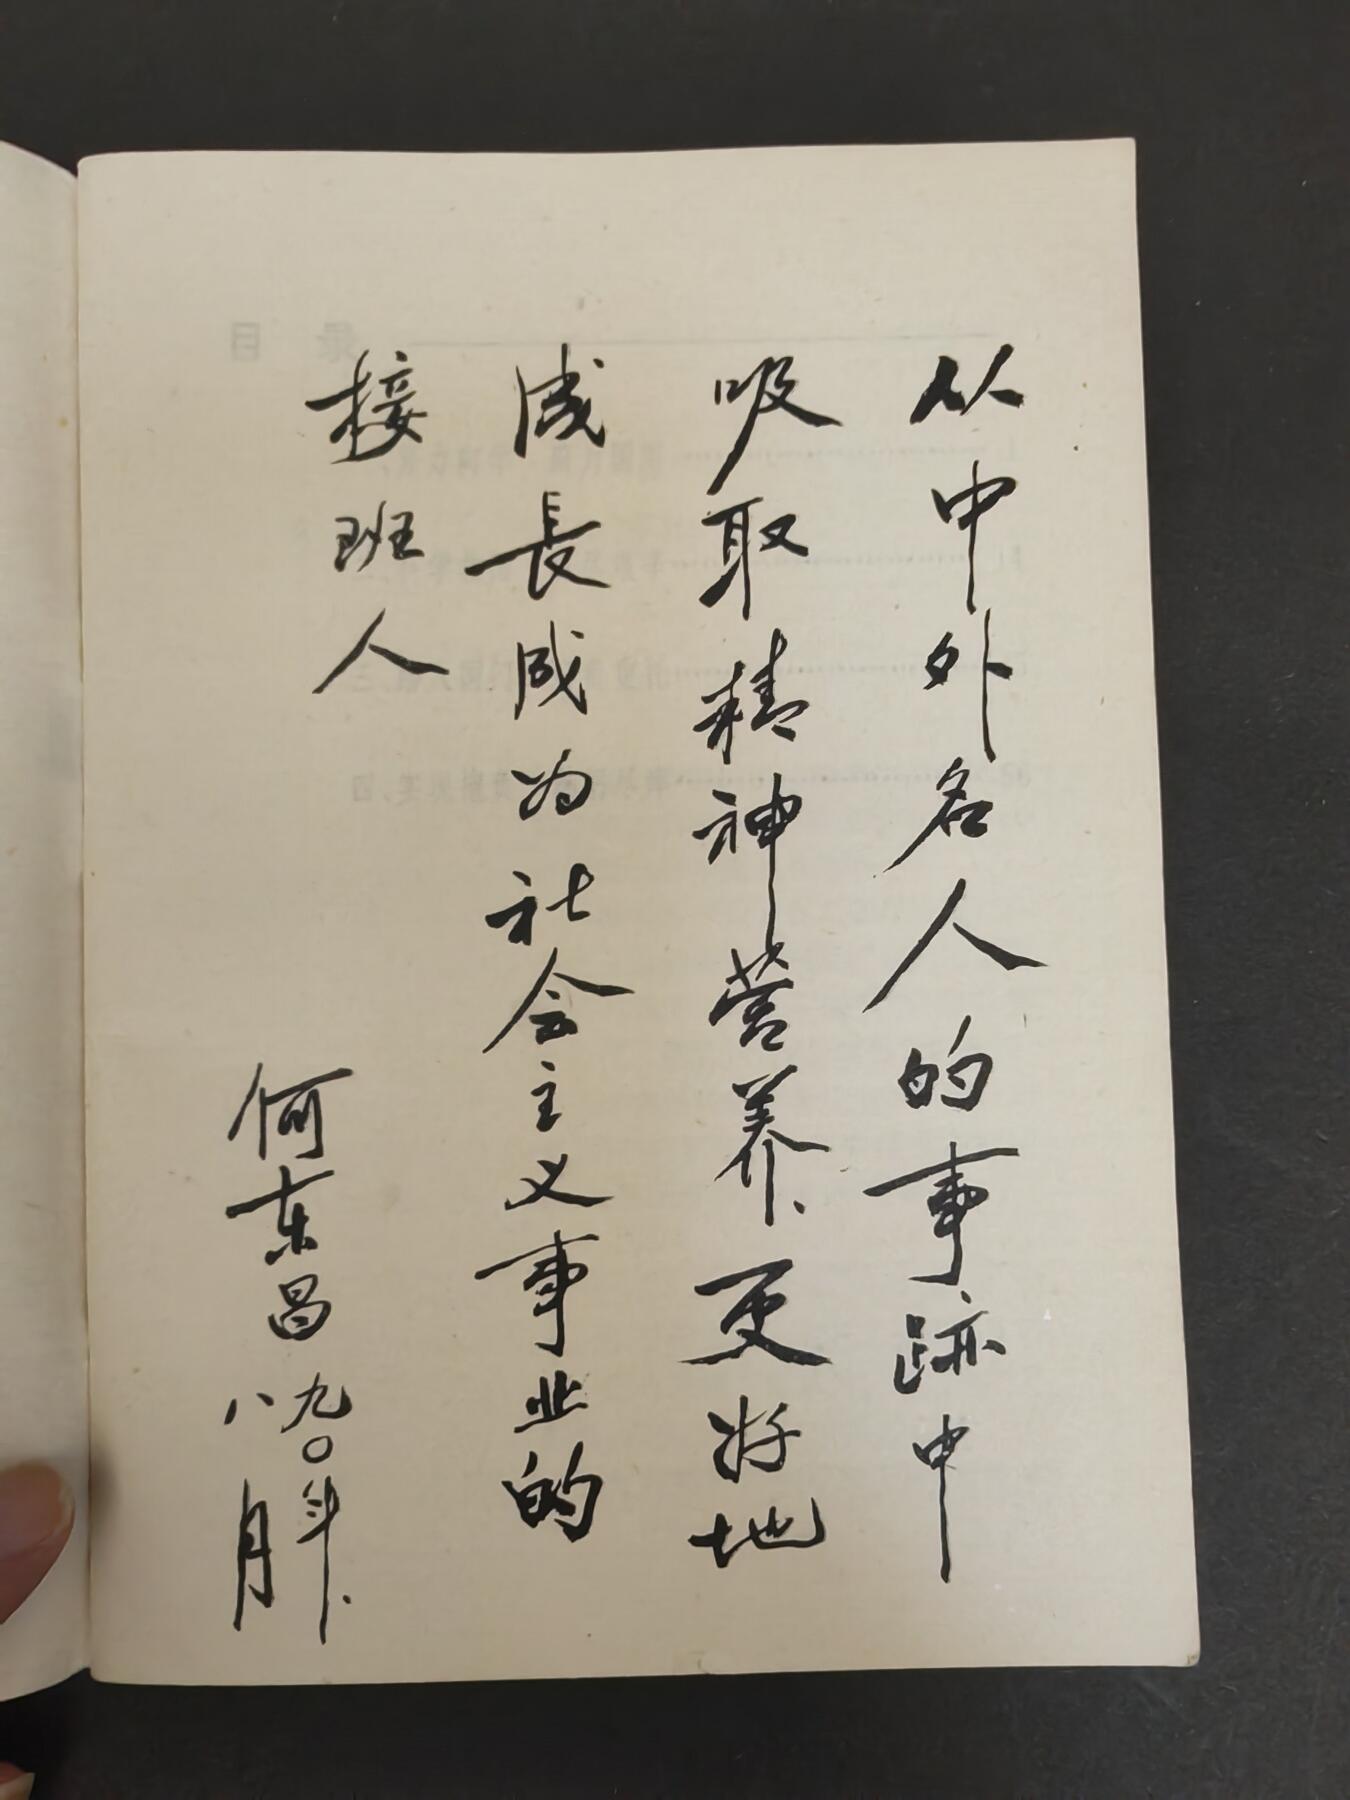 从中外名人的事跡中
吸取精神营养、更好地
成長成为社会主义事业的
接班人
何东昌
九〇年
八月
目 录